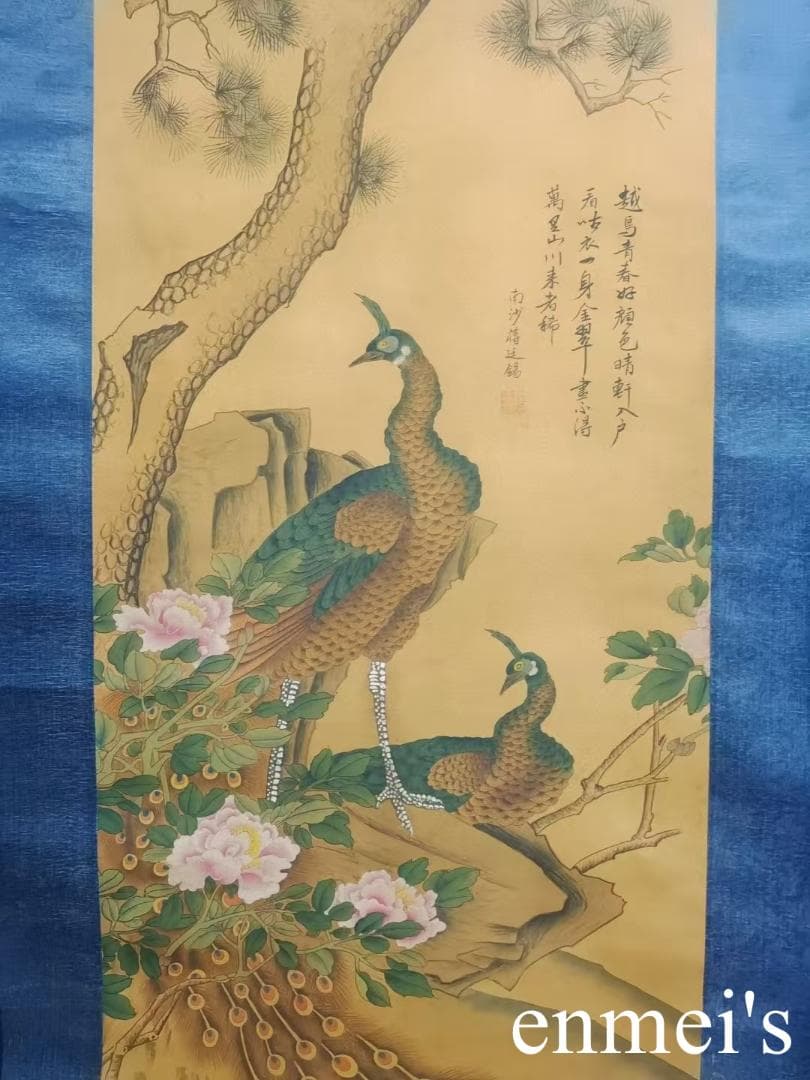 越鳥青春好顔色晴軒入户
看呫衣一身金翠畫不得
萬里山川来者稀
南沙蒋廷錫
enmei's